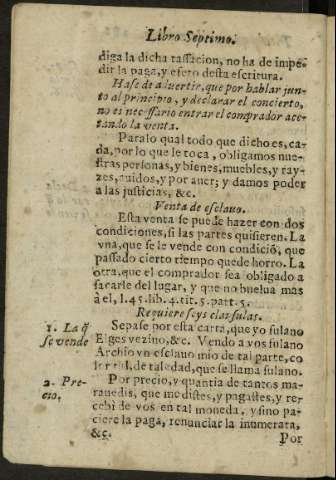 Libro Septimo.
diga la dicha tassacion, no ha de impe-
dir la paga, y efeto desta escritura.
Hase de aduertir, que por hablar jun-
to al principio, y declarar el concierto,
no es necessario entrar el comprador ace-
tando la venta.
Para lo qual todo que dicho es, ca-
da, por lo que le toca, obligamos nue-
stras personas, y bienes, muebles, y ray-
zes, auidos, y por auer; y damos poder
a las justicias, &c.
Venta de esclauo.
Esta venta se puede hazer con dos
condiciones, si las partes quisieren. La
vna, que se le vende con condició, que
passado cierto tiempo quede horro. La
otra, que el comprador sea obligado a
sacarle del lugar, y que no buelua mas
à èl, l. 45. lib. 4. tit. 5. part. 5.
Requiere seys clausulas.
1. La q̃ se vende
Sepase por esta carta, que yo fulano
vezino, &c. Vendo a vos fulano
vn esclauo mio de tal parte, co
lor tal, de tal edad, que se llama fulano.
2. Pre-
cio.
Por precio, y quantia de tantos ma-
rauedis, que me distes, y pagastes, y re-
cebi de vos en tal moneda, y sino pa-
rece la paga, renunciar la inumerata,
&c.
Por